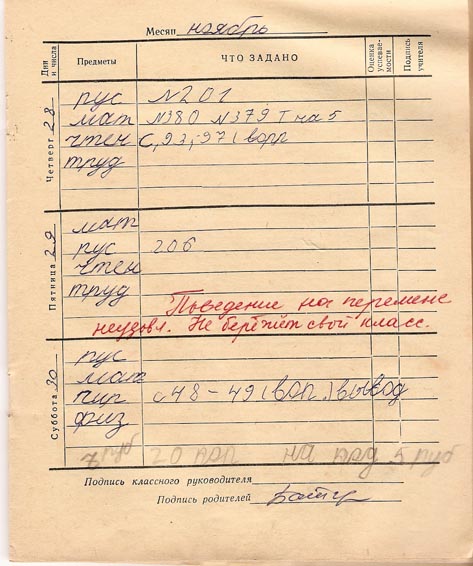 Месяц ноябрь
Дни и числа Предметы ЧТО ЗАДАНО Оценка успеваемости Подпись учителя
Четверг 28
рус №201
мат №380 №379 Т на 5
чтен С, 93,-97 (вопр
труд
Пятница 29
мат
рус 206
чтен
труд
Поведение на перемене
неудовл. Не бережёт свой класс.
Суббота 30
рус
мат
пир с 48-49 (воп.) вывод
физ
7 руб 20 коп на прд 5 руб
Подпись классного руководителя
Подпись родителей